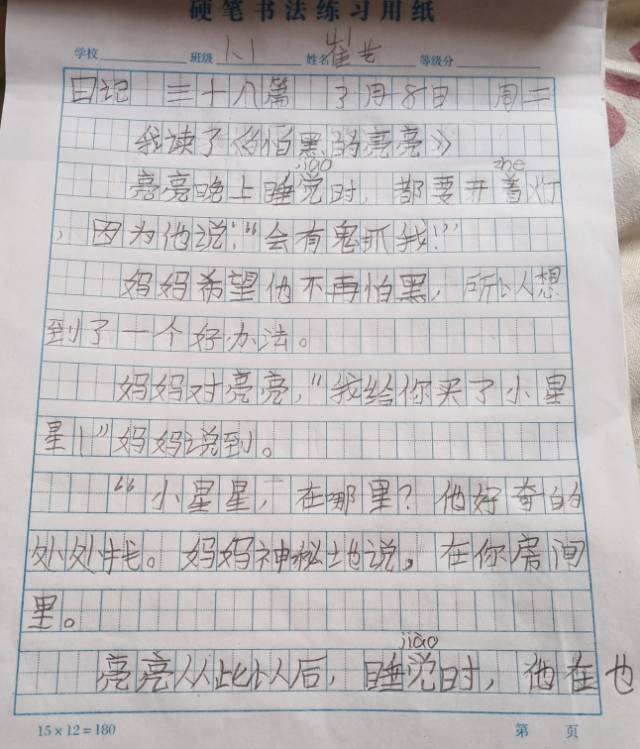 硬笔书法练习用纸
学校 班级 姓名 崔 等级分
日记 三十八篇 7月8日 周二
我读了《怕黑的亮亮》
jiào zhe
亮亮晚上睡觉时，都要开着灯
，因为他说：“会有鬼抓我！”
妈妈希望他不再怕黑，所以人想
到了一个好办法。
妈妈对亮亮，“我给你买了小星
星！”妈妈说到。
“小星星，在哪里？他好奇的
处处找。妈妈神秘地说，在你房间
里。
jiào
亮亮从此以后，睡觉时，他在也
15×12=180 第 页